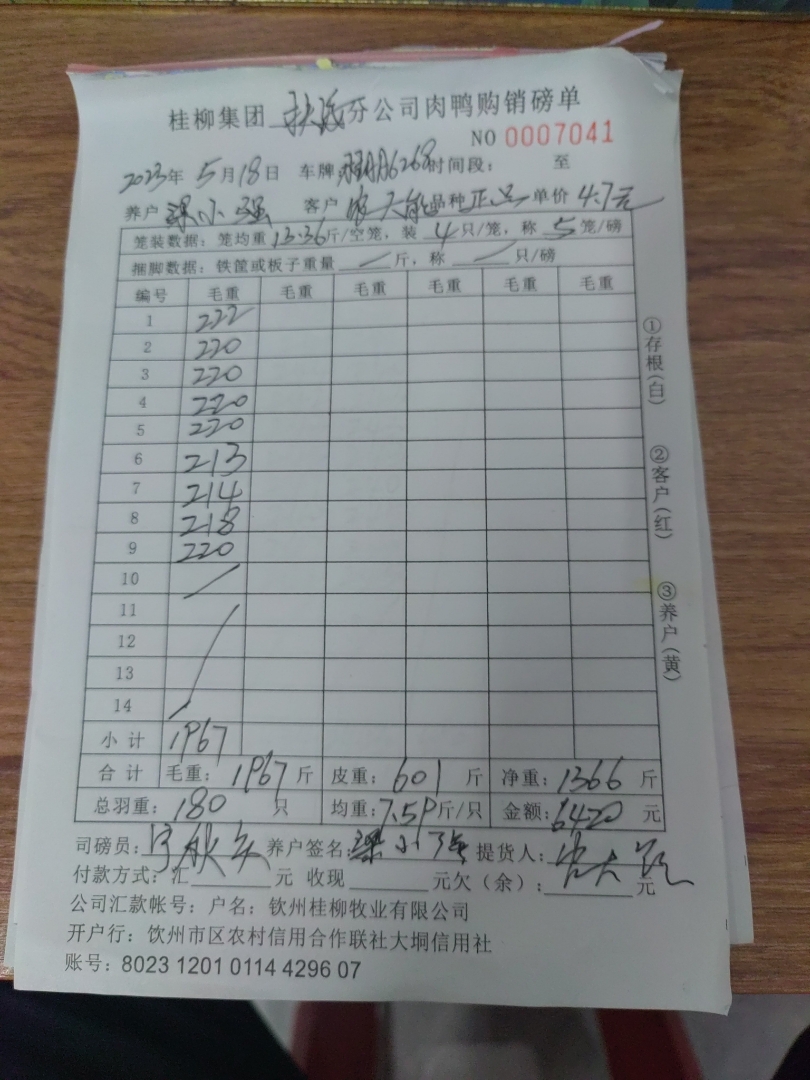 桂柳集团 分公司肉鸭购销磅单
NO 0007041
2023年 5月18日 车牌 6268 时间段： 至
养户 梁小强 客户 农大能 品种 正品 单价 4.7元
笼装数据：笼均重13.36斤/空笼，装 4 只/笼，称 5 笼/磅
捆脚数据：铁筐或板子重量 / 斤，称 / 只/磅
编号 毛重 毛重 毛重 毛重 毛重 毛重
1 222
2 220
3 220
4 220
5 220
6 213
7 214
8 218
9 220
10 /
11
12
13
14
小计 1967
合计 毛重：1967斤 皮重：601斤 净重：1366斤
总羽重：180只 均重：7.59斤/只 金额：6420元
司磅员： 养户签名：梁小强 提货人：农大能
付款方式：汇 元 收现 元欠（余）： 元
公司汇款帐号：户名：钦州桂柳牧业有限公司
开户行：钦州市区农村信用合作联社大垌信用社
账号：8023 1201 0114 4296 07
①存根（白）
②客户（红）
③养户（黄）